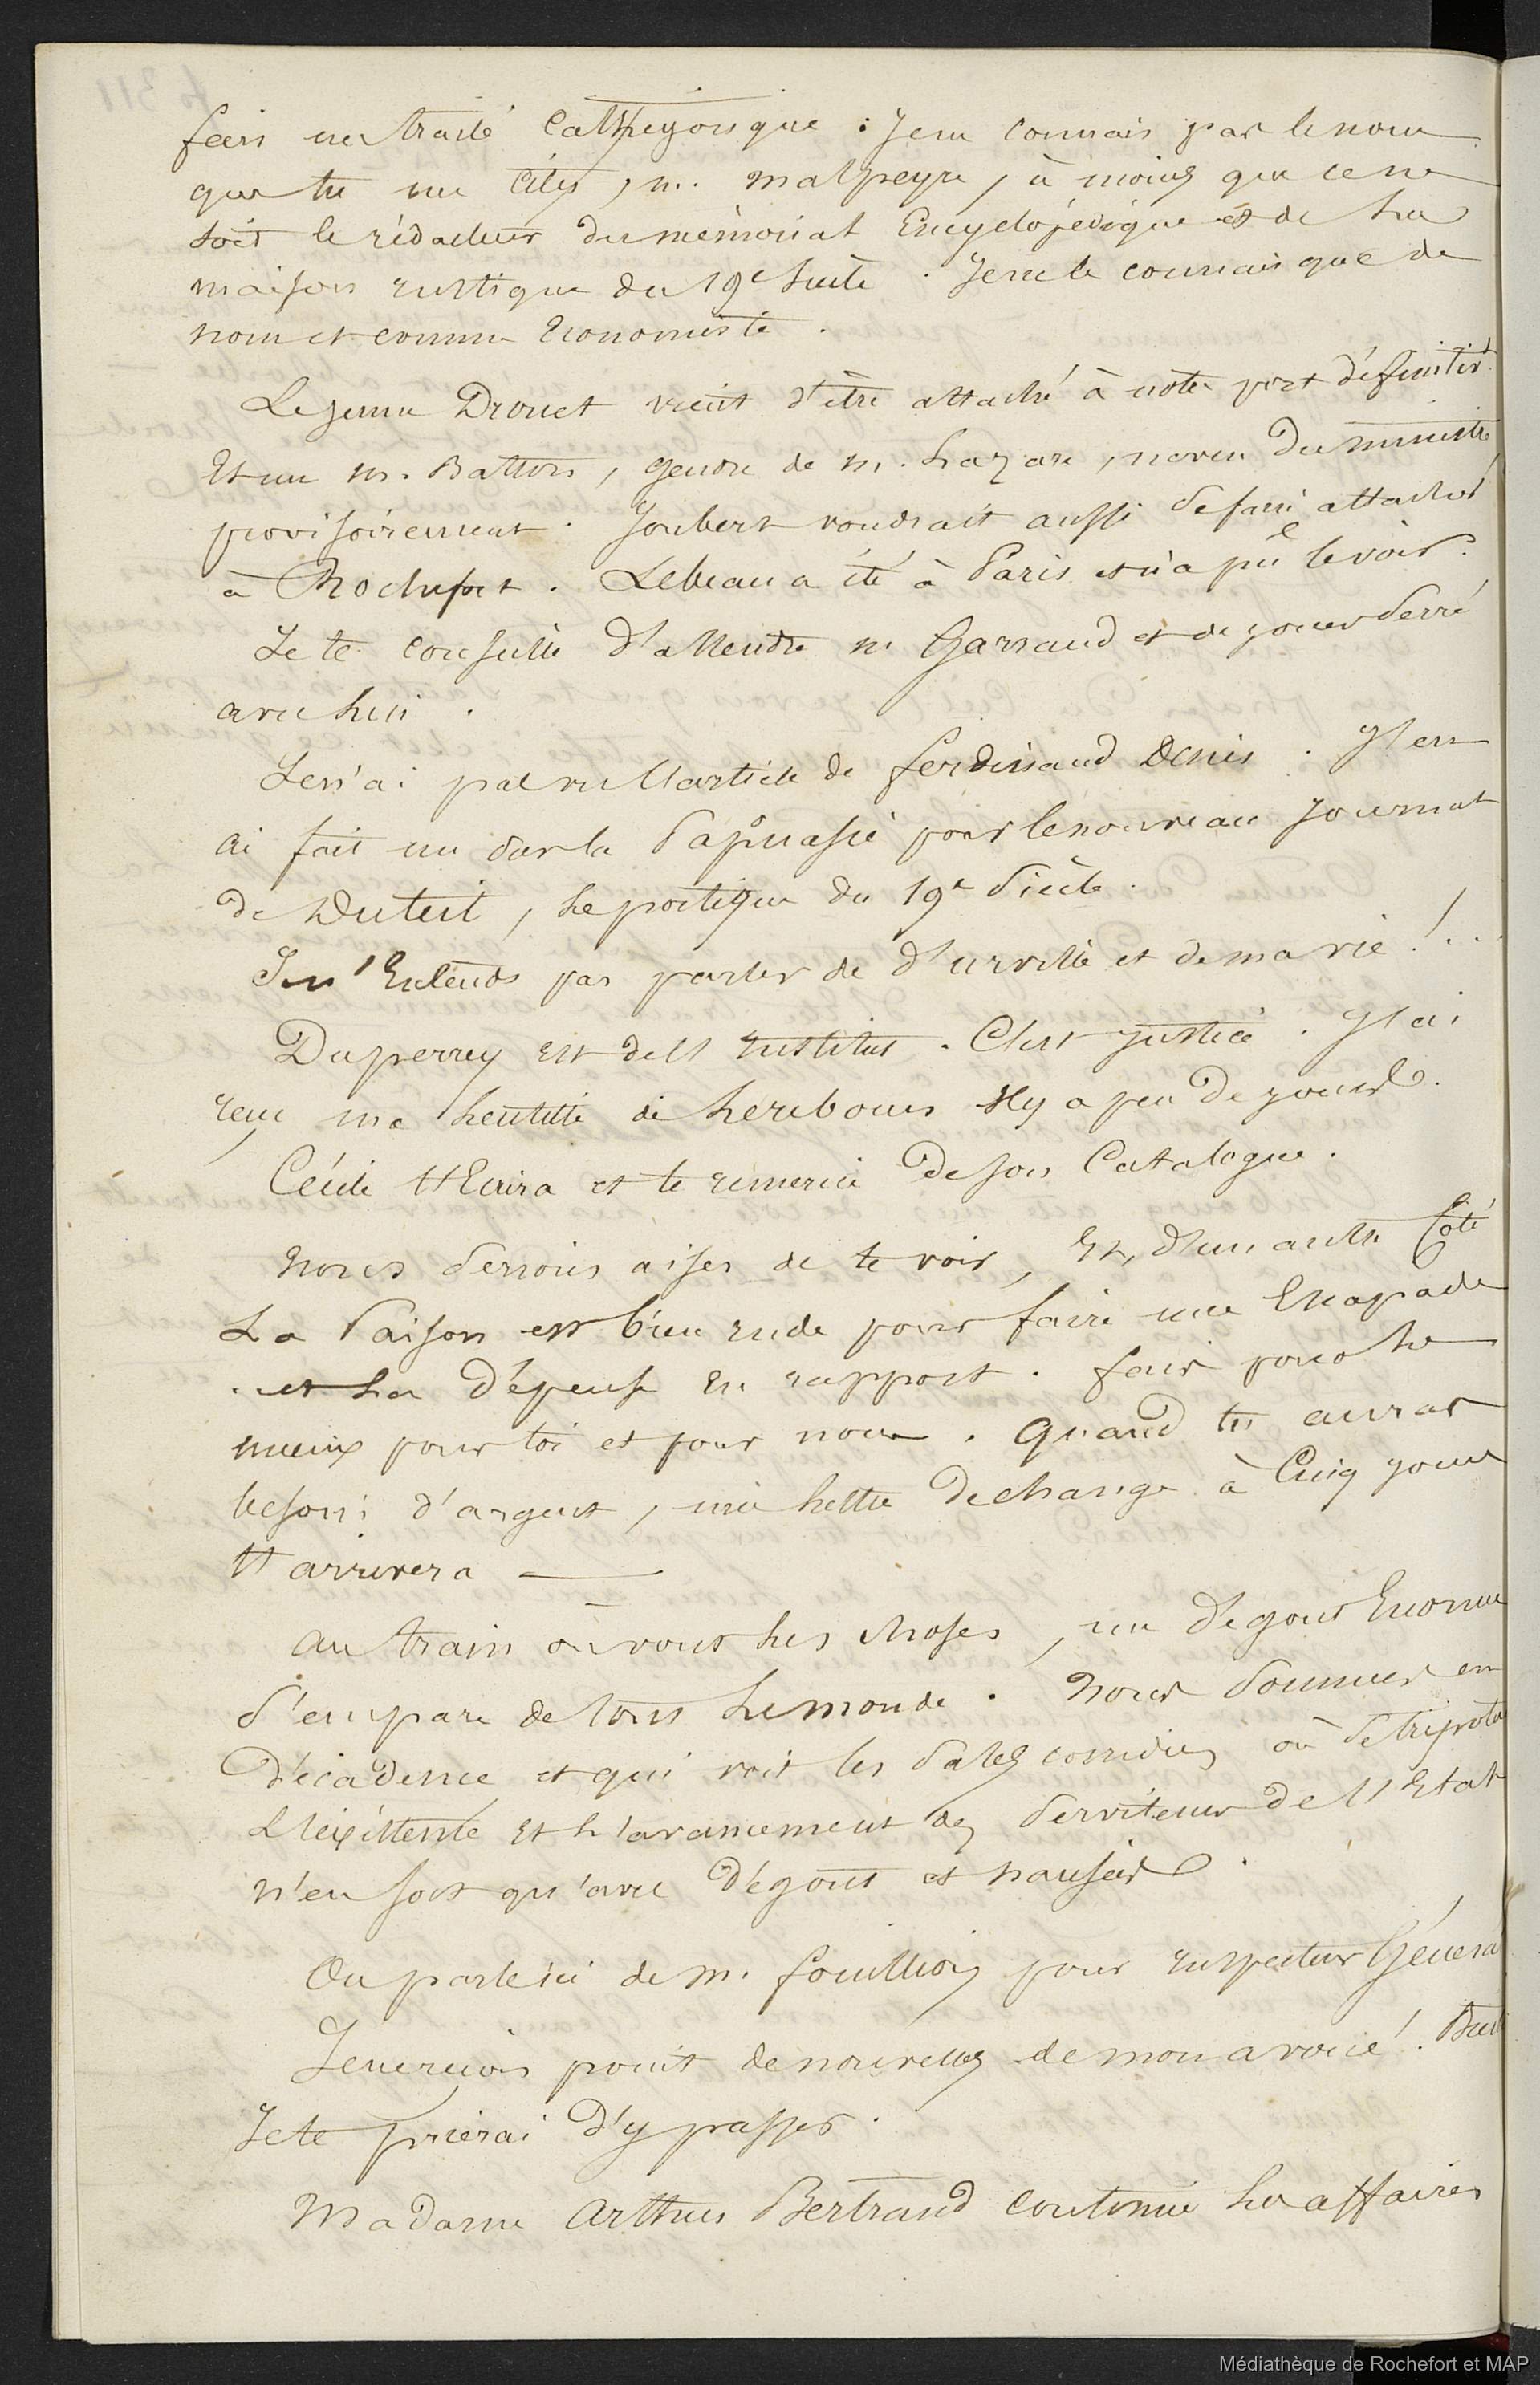 fais un traité Cathegorique : Je ne connais par le nom
que tu me cites, m. malpeyre, à moins que ce ne
soit le rédacteur du mémorial Encyclopédique et de La
maison rustique du 19e Siècle. Je ne le connais que de
nom et comme Economiste.
Le jeune Drouet vient d'être attaché à notre port définitivt
Et un m. Battons, gendre de m. Lazare, neveu Du ministre
provisoirement. Joubert voudrait aussi se faire attacher
à Rochefort. Lebeau a été à Paris et n'a pu le voir.
Je te conseille d'attendre m Garraud et de jouer serré
avec Lui.
Je n'ai pas vu l'article de ferdinand Denis. J'en
ai fait un sur la Papouasie pour le nouveau Journal
de Duteil, Le portique du 19e Siècle.
Je n'Entends pas parler de d'urville et de ma vie !...
Duperrey est de l'institut. C'est justice. J'ai
reçu une Lettre de Lerebours Il y a peu De jours.
Cécile t'Ecrira et te remercie De son Catalogue.
Nous serions aises de te voir, Et, d'un autre Coté
La Saison est bien rude pour faire une Escapade
et La dépense En rapport. fais pour Le
mieux pour toi et pour nous. Quand tu auras
besoin d'argent, une Lettre De change à Cinq jours
t'arrivera —
Au train où vont Les choses, un dégout Enorme
s'empare de tout Le monde. Nous sommes en
Décadence et qui voit les sales comédies où se tripote
L'existence Et L'avancement des Serviteurs De l'Etat
n'en sort qu'avec Dégout et nausées.
On parle ici de m. fouillioy pour inspecteur Général
Je ne reçois point de nouvelles de mon avoué !
Je te prierai D'y passer.
Madame Arthus Bertrand continue Les affaires
Médiathèque de Rochefort et MAP